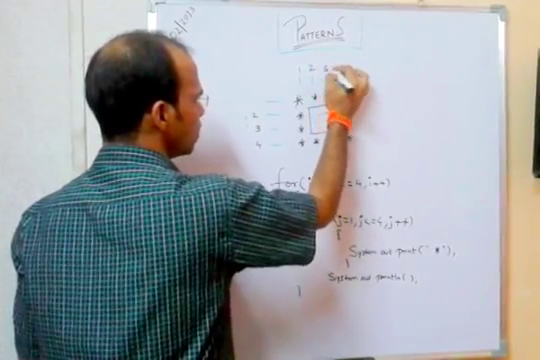 02/2013
PATTERNS
1 2 3
* *
2 *
3 *
4 * * *
for(i =4, i++)
j=1, j<=4, j++)
{
System out print(" * "),
}
System out println( ),
}